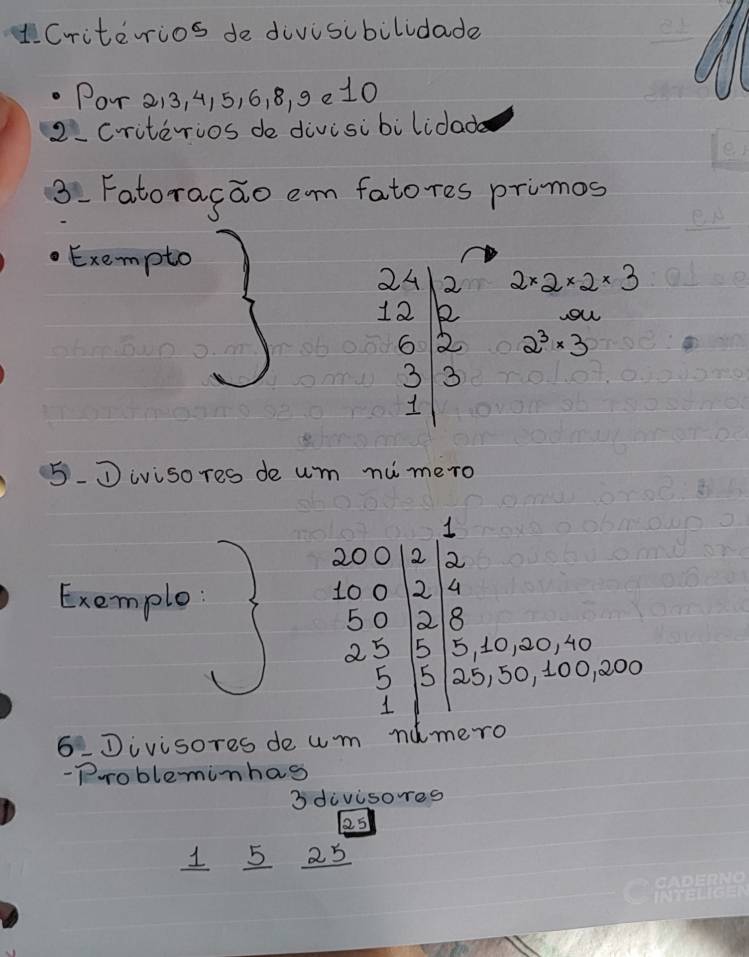 1-Critérios de divisibilidade
• Por 2,3,4,5,6,8,9 e 10
2- Critérios de divisibilidade
3- Fatoração em fatores primos
• Exemplo
24 2 2×2×2×3
12 2 ou
6 2 2³×3
3 3
1
5- Divisores de um número
1
200 2 2
Exemplo: 100 2 4
50 2 8
25 5 5,10,20,40
5 5 25,50,100,200
1
6- Divisores de um número
-Probleminhas
3 divisores
25
1 5 25
CADERNO
INTELIGEN